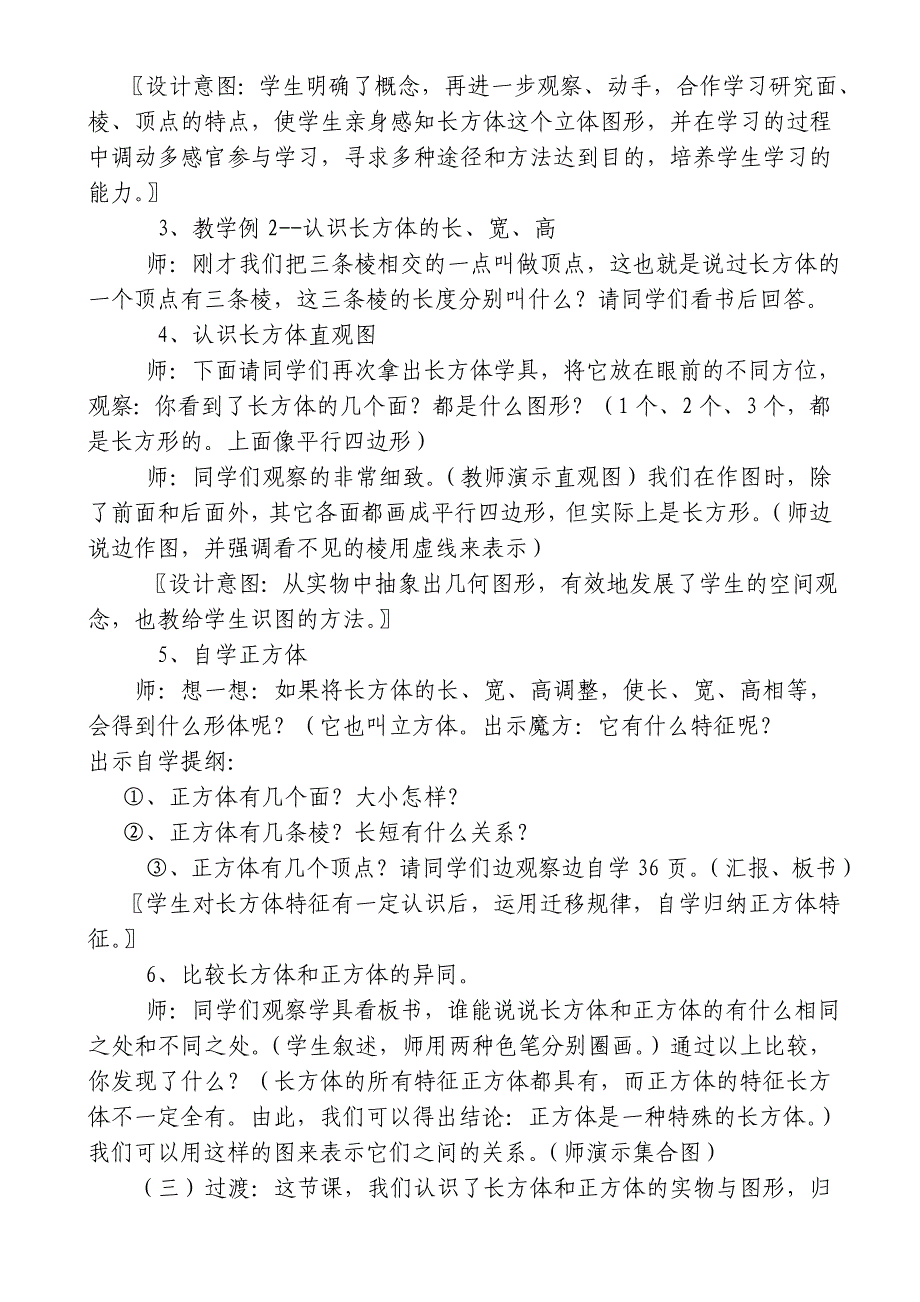 〖设计意图：学生明确了概念，再进一步观察、动手，合作学习研究面、
棱、顶点的特点，使学生亲身感知长方体这个立体图形，并在学习的过程
中调动多感官参与学习，寻求多种途径和方法达到目的，培养学生学习的
能力。〗
3、教学例 2--认识长方体的长、宽、高
师：刚才我们把三条棱相交的一点叫做顶点，这也就是说过长方体的
一个顶点有三条棱，这三条棱的长度分别叫什么？请同学们看书后回答。
4、认识长方体直观图
师：下面请同学们再次拿出长方体学具，将它放在眼前的不同方位，
观察：你看到了长方体的几个面？都是什么图形？（1 个、2 个、3 个，都
是长方形的。上面像平行四边形）
师：同学们观察的非常细致。（教师演示直观图）我们在作图时，除
了前面和后面外，其它各面都画成平行四边形，但实际上是长方形。（师边
说边作图，并强调看不见的棱用虚线来表示）
〖设计意图：从实物中抽象出几何图形，有效地发展了学生的空间观
念，也教给学生识图的方法。〗
5、自学正方体
师：想一想：如果将长方体的长、宽、高调整，使长、宽、高相等，
会得到什么形体呢？（它也叫立方体。出示魔方：它有什么特征呢？
出示自学提纲：
①、正方体有几个面？大小怎样？
②、正方体有几条棱？长短有什么关系？
③、正方体有几个顶点？请同学们边观察边自学 36 页。（汇报、板书）
〖学生对长方体特征有一定认识后，运用迁移规律，自学归纳正方体特
征。〗
6、比较长方体和正方体的异同。
师：同学们观察学具看板书，谁能说说长方体和正方体的有什么相同
之处和不同之处。（学生叙述，师用两种色笔分别圈画。）通过以上比较，
你发现了什么？（长方体的所有特征正方体都具有，而正方体的特征长方
体不一定全有。由此，我们可以得出结论：正方体是一种特殊的长方体。）
我们可以用这样的图来表示它们之间的关系。（师演示集合图）
（三）过渡：这节课，我们认识了长方体和正方体的实物与图形，归